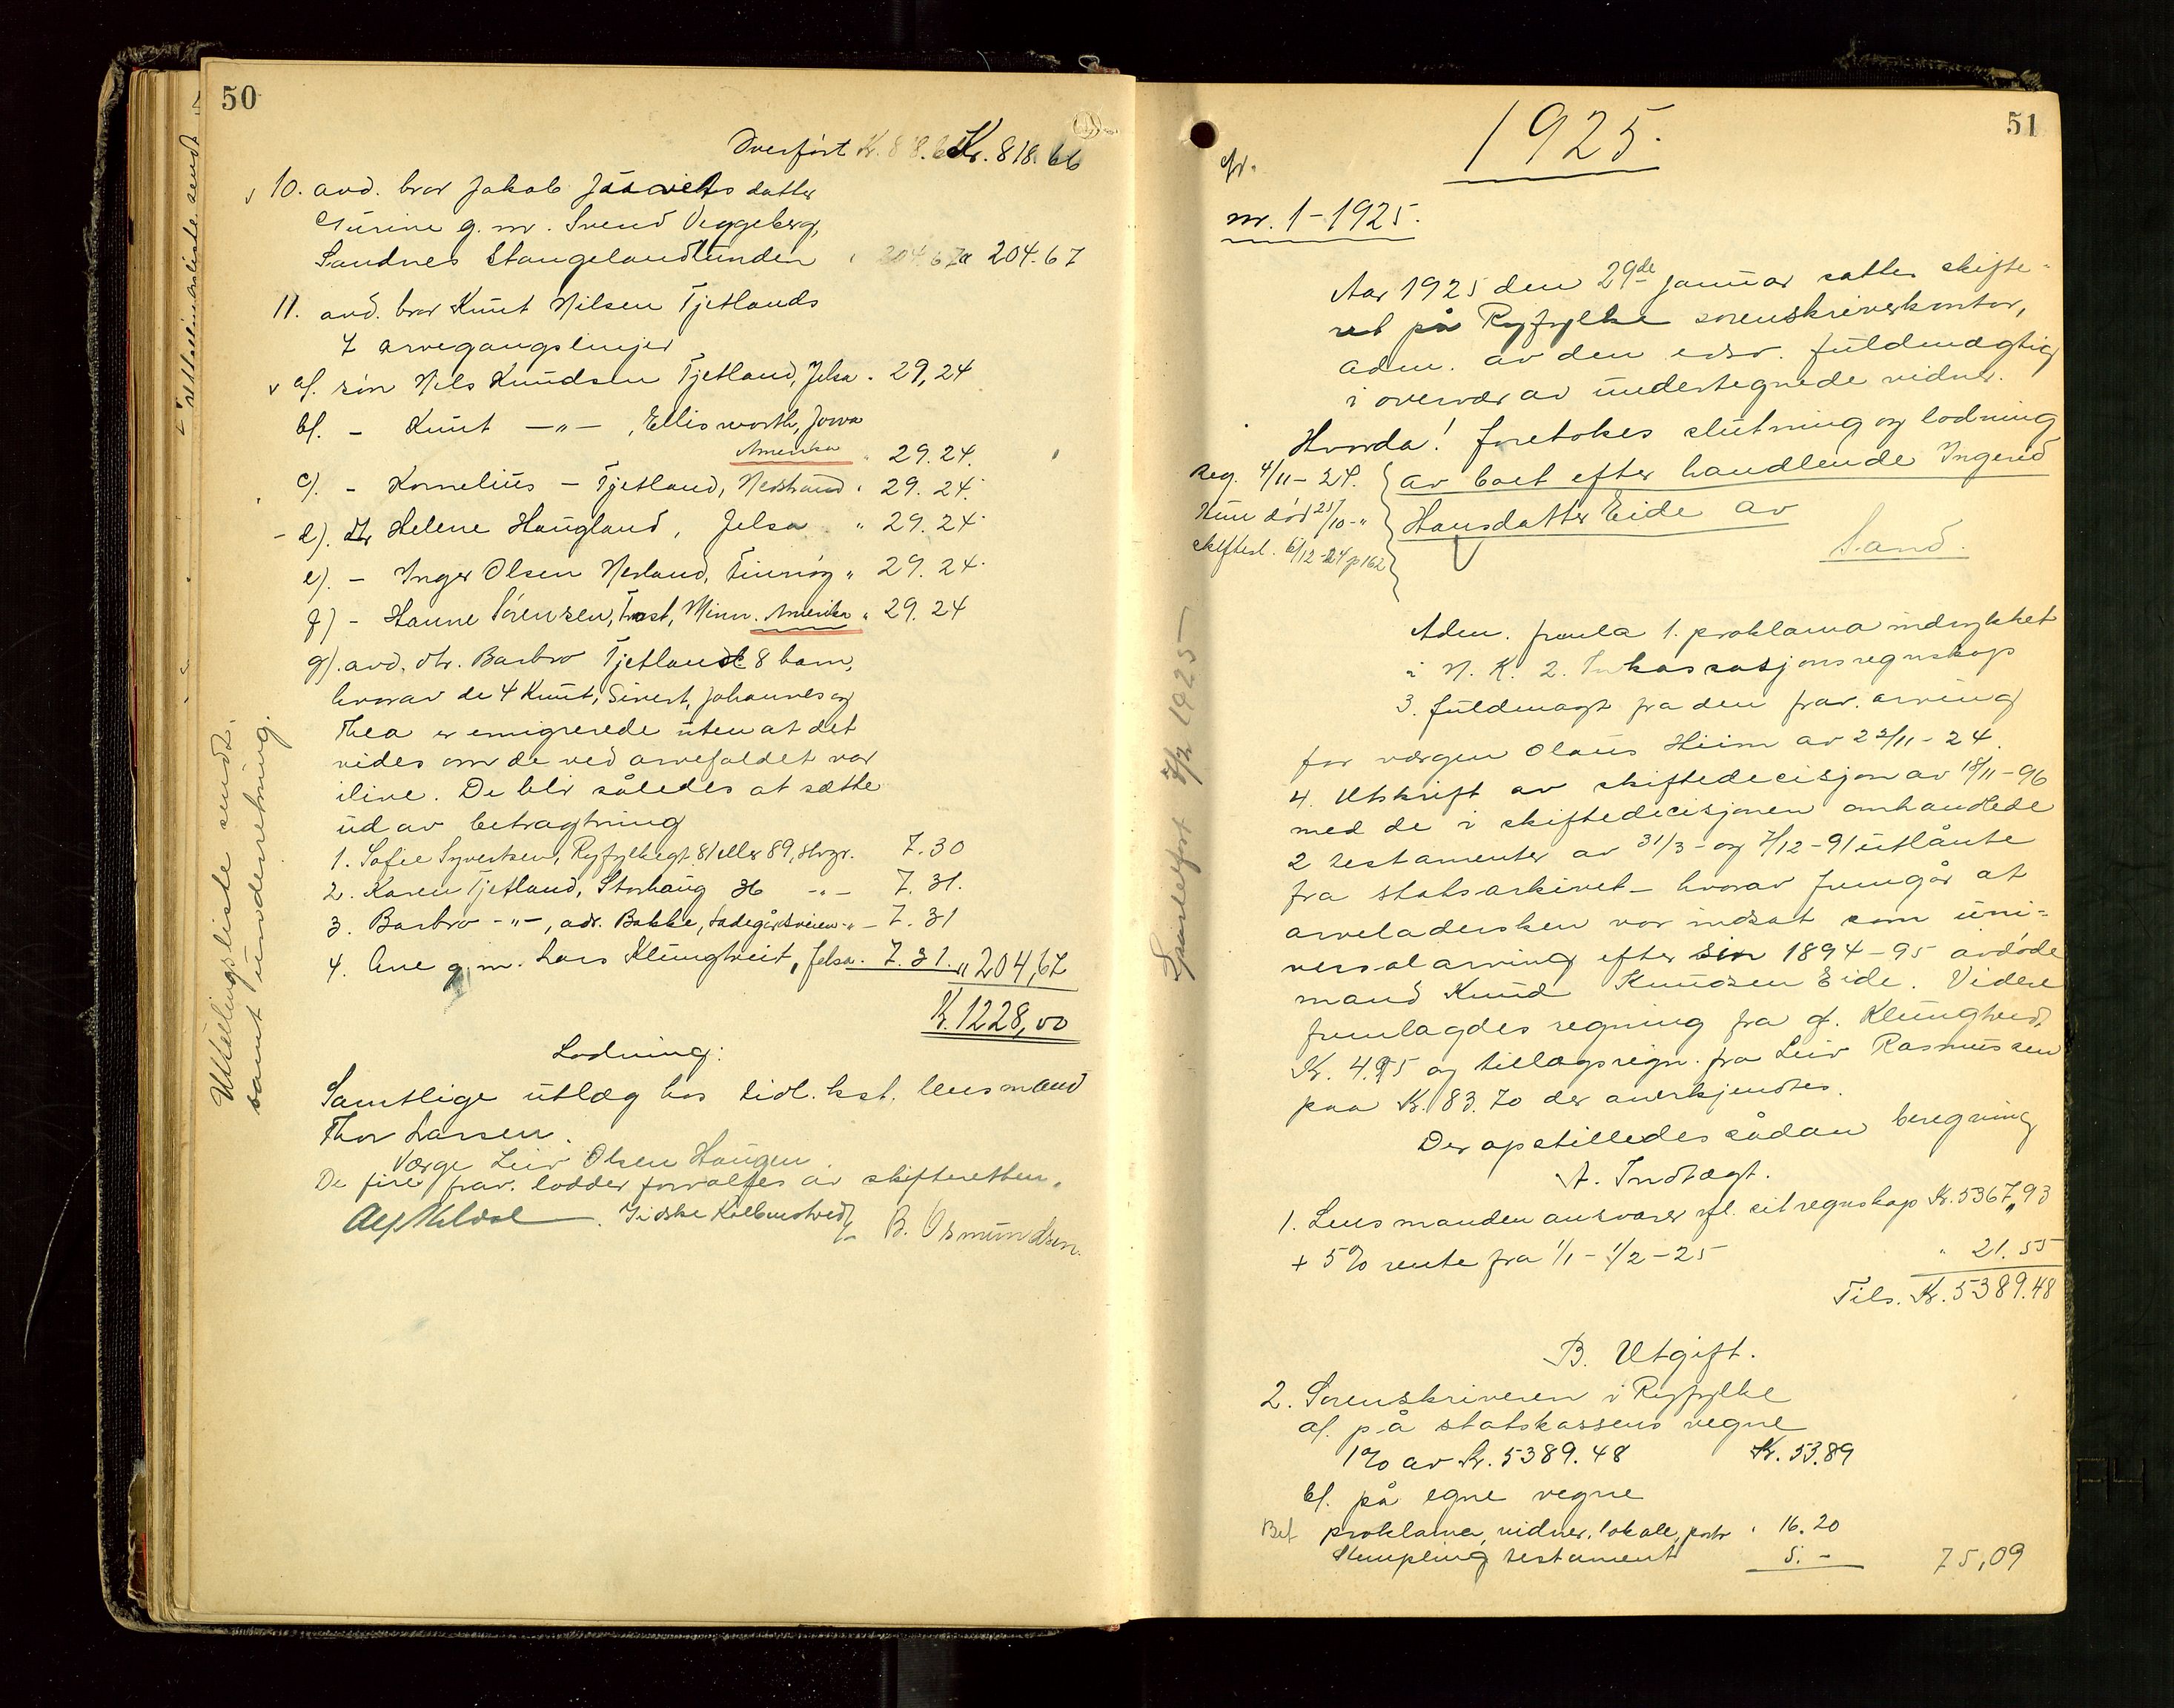 50
Overført Kr. 818.66
10. avd. bror Jakob datter
Gurine g. m. Svend Veggeberg,
Sandnes Stangelandlunden 204.67 " 204.67
11. avd. bror Knut Nilsen Tjetlands
7 arvegangslinjer
a/. søn Nils Knudsen Tjetland, Jelsa . 29,24
b/. - Knut -"- , Ellisworth, Jowa
Amerika " 29.24.
c/. - Kornelius - Tjetland, Nedstrand " 29.24.
d). dtr Helene Haugland, Jelsa " 29.24
e). - Inger Olsen Nesland, Finnøy " 29.24.
f) - Hanne Sørensen, Frost, Minn. Amerika " 29.24
g). avd. dtr. Barbro Tjetland 8 barn,
hvorav de 4 Knut, Sivert, Johannes og
Thea er emigrerede uten at det
vides om de ved arvefaldet var
ilive. De blir således at sætte
ud av betragtning
1. Sofie Syvertsen, Ryfylkegt. 81 eller 89, Stvgr. 7.30
2. Karen Tjetland, Storhaug 36 -"- 7.31.
3. Barbro -"-, adr. Bakke, Ladegårdsveien -"- 7.31
4. Ane g. m. Lars Klungtveit, Jelsa. 7.31. " 204,67
Kr. 1228,00
Lodning:
Samtlige utlæg hos tidl. kst. lensmand
Thor Larsen.
Værge Leiv Olsen Haugen
De fire frav. lodder forvaltes av skifteretten.
B. Osmundsen.
Uttællingsliste sendt.
samt underretning.
51
1925.
nr. 1-1925.
Aar 1925 den 29de januar sattes skifte-
ret på Ryfylke sorenskriverkontor,
adm. av den edsv. fuldmægtig
i overvær av undertegnede vidner.
Hvorda! foretokes slutning og lodning
Reg. 4/11-24. av boet efter handlende Ingerid
Hun død 21/10-" Hansdatter Eide av
skiftesl. 6/12-24 p 162
Sand.
Adm. freml. 1. proklama indrykket
i N. K. 2. Inkassasjonsregnskap
3. fuldmagt fra den frav. arving
for værgen Olaus Hiim av 22/11-24.
4. Utskrift av skiftedecisjon av 18/11-96
med de i skiftedecisjonen omhandlede
2 testamenter av 31/3- og 7/12-91 utlånte
fra statsarkivet - hvorav fremgår at
arveladersken var indsat som uni-
versalarving efter sin 1894-95 avdøde
mand Knud Knudsen Eide. Videre
fremlagdes regning fra g. Klungtveit
Kr. 4.95 og tillægsregn. fra Leiv Rasmussen
paa Kr. 83.70 der anerkjendtes.
Der opstilledes sådan beregning
A. Indtægt.
1. Lensmanden ansvarer efl. sit regnskap Kr. 5367,93
+ 5% rente fra 1/1 - 1/2-25 " 21.55
Tils. Kr. 5389.48
B. Utgift.
2. Sorenskriveren i Ryfylke
a/. på statskassens vegne
1% av Kr. 5389.48 Kr. 53.89
b/. på egne vegne
Bet proklama, vidner, lokale, porto " 16.20
Stempling testament 5. - 75,09